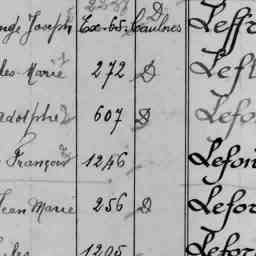 nge Joseph Ex-65. Caulnes Leffr
les Marie 272 D Lefl
adolphe 607 D Lefo
François 1246 Lefoi
Jean Marie 256 D Lefor
1205 Lefor